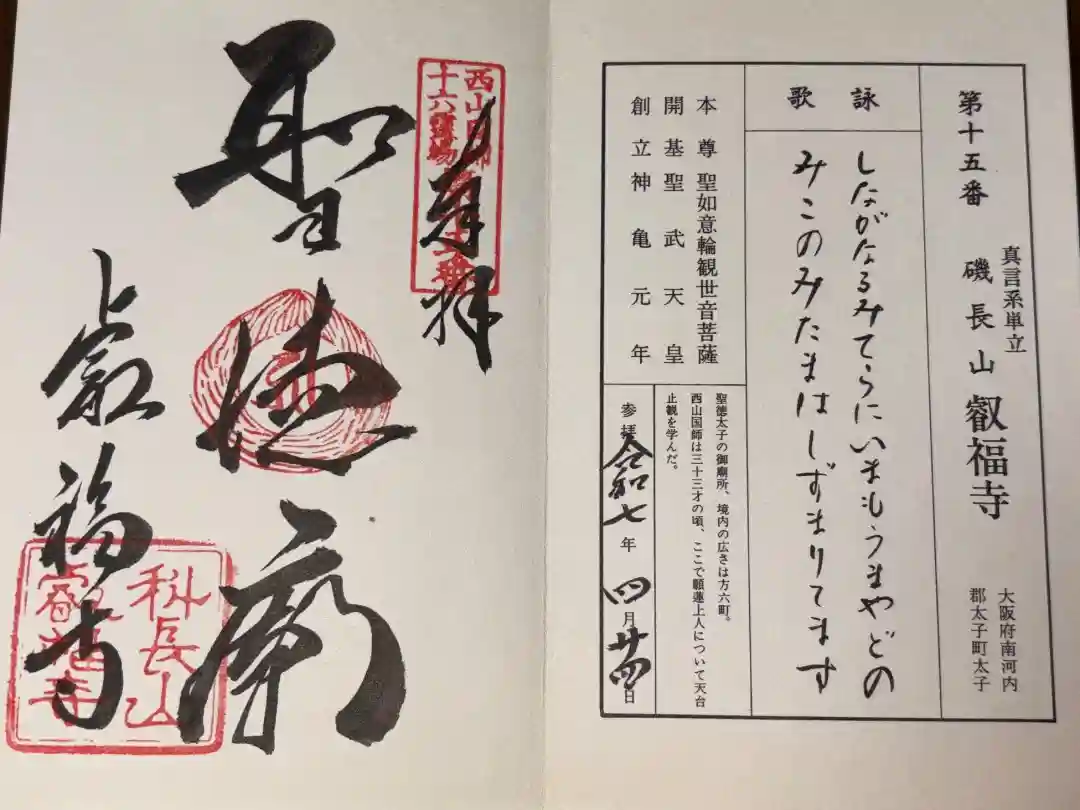 第十五番
真言系単立
磯長山 叡福寺
大阪府南河内
郡太子町太子
詠歌
しながなるみてらにいまもうまやどの
みこのみたまはしずまりてます
本尊 聖如意輪観世音菩薩
開基 聖武天皇
創立 神亀元年
聖徳太子の御廟所、境内の広さは方六町。
西山国師は三十三才の頃、ここで願蓮上人について天台
止観を学んだ。
参拝 令和七年四月廿四日
奉拝
西山国師
十六霊場第十五番
聖徳廟
叡福寺
科長山
叡福寺